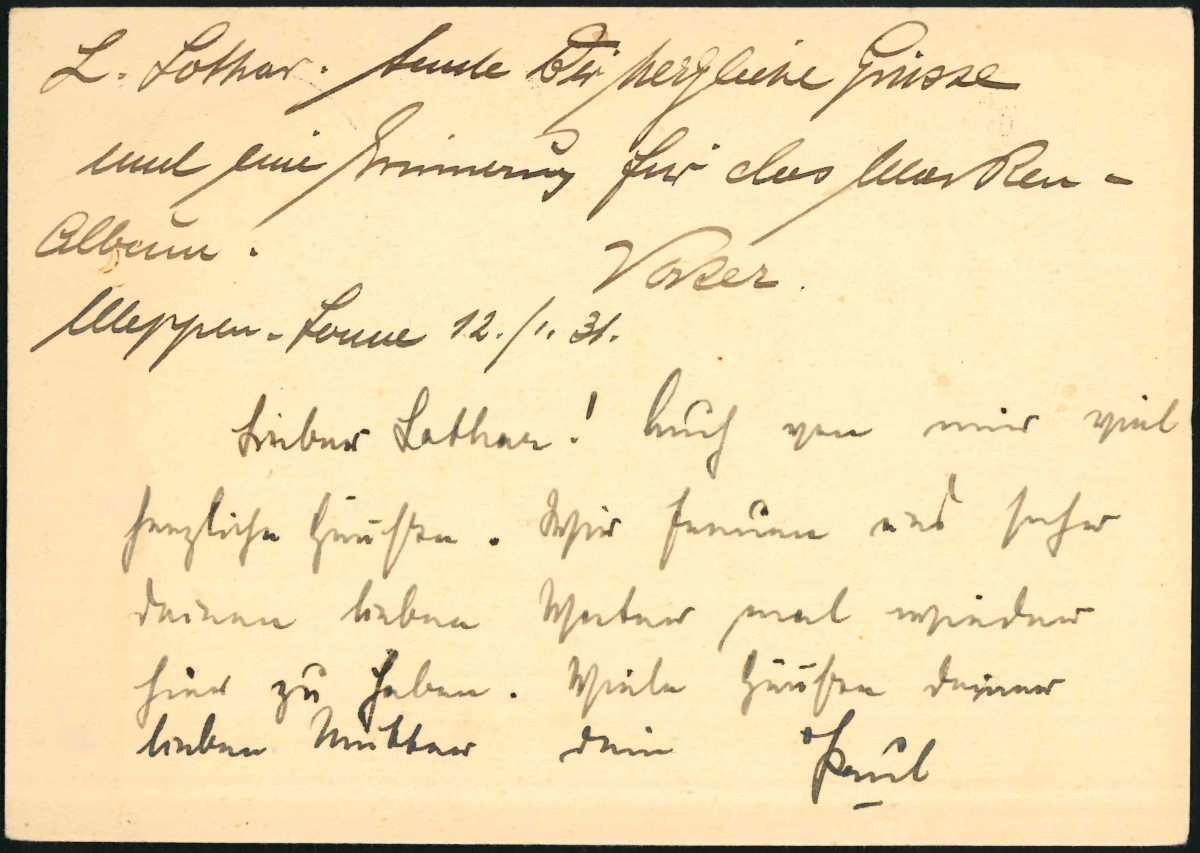 L. Lothar. Sende Dir herzliche Grüsse
und eine Erinnerung für das Marken-
Album.
Meppen - 12./1. 31.
Lieber Lothar! Auch von mir viel
herzliche Grüßen. Wir freuen uns sehr
deinen lieben Vater mal wieder
hier zu haben. Viele Grüßen deiner
lieben Mutter dein Paul